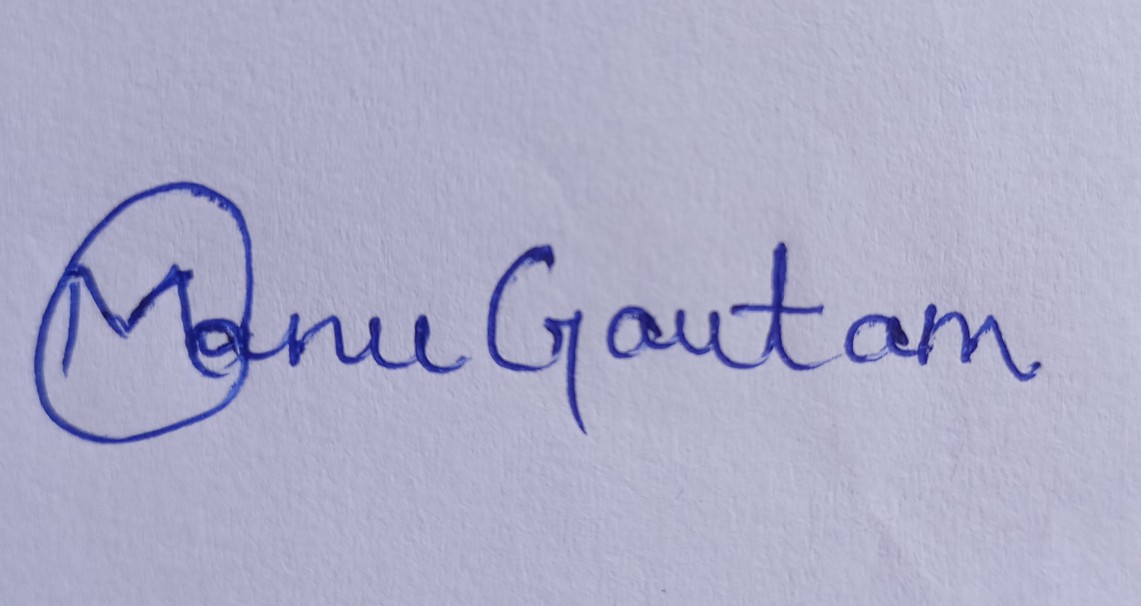 Manu Gautam